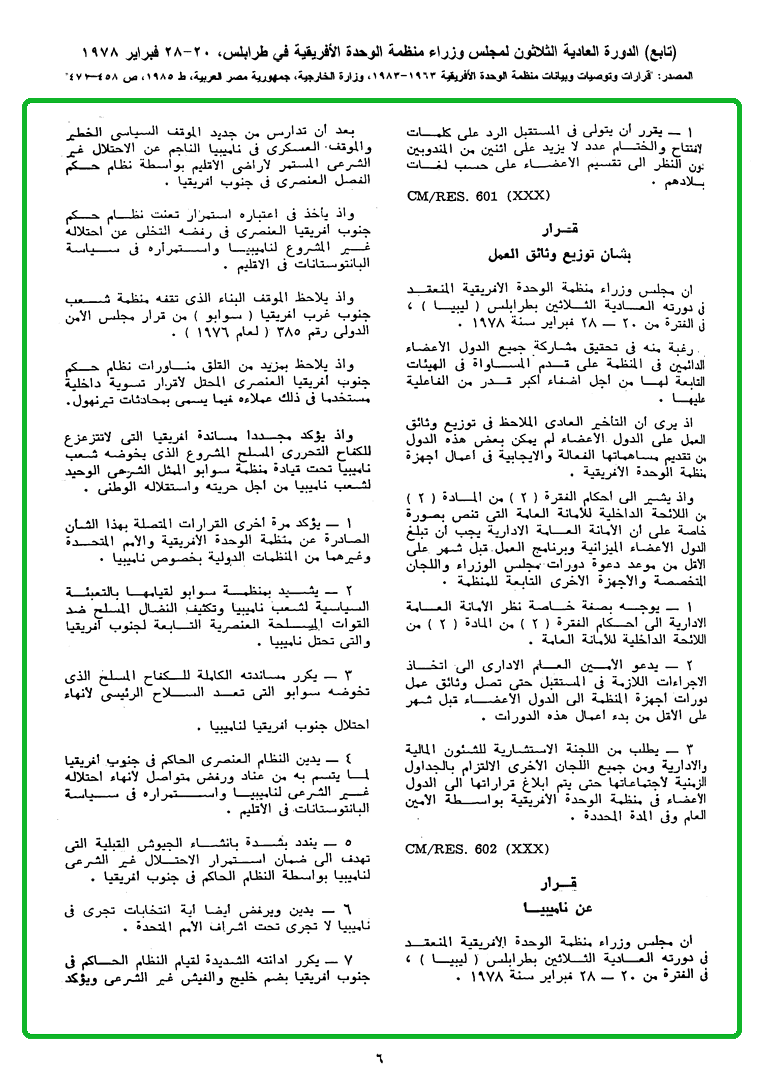 (تابع) الدورة العادية الثلاثون لمجلس وزراء منظمة الوحدة الأفريقية في طرابلس، ٢٠-٢٨ فبراير ١٩٧٨
المصدر: "قرارات وتوصيات وبيانات منظمة الوحدة الأفريقية ١٩٦٣-١٩٨٣، وزارة الخارجية، جمهورية مصر العربية، ط ١٩٨٥، ص ٤٥٨-٤٧١"
١ — يقرر أن يتولى فى المستقبل الرد على كلمات
لافتتاح والختام عدد لا يزيد على اثنين من المندوبين
دون النظر الى تقسيم الاعضاء على حسب لغات
بلادهم .
CM/RES. 601 (XXX)
قرار
بشان توزيع وثائق العمل
ان مجلس وزراء منظمة الوحدة الأفريقية المنعقد
فى دورته العادية الثلاثين بطرابلس ( ليبيا ) ،
فى الفترة من ٢٠ — ٢٨ فبراير سنة ١٩٧٨ .
رغبة منه فى تحقيق مشاركة جميع الدول الأعضاء
الدائمين فى المنظمة على قدم المساواة فى الهيئات
التابعة لها من أجل اضفاء أكبر قدر من الفاعلية
عليها .
اذ يرى أن التأخير العادى الملاحظ فى توزيع وثائق
العمل على الدول الأعضاء لم يمكن بعض هذه الدول
من تقديم مساهماتها الفعالة والايجابية فى أعمال أجهزة
منظمة الوحدة الأفريقية .
واذ يشير الى أحكام الفقرة ( ٢ ) من المادة ( ٢ )
من اللائحة الداخلية للأمانة العامة التى تنص بصورة
خاصة على أن الأمانة العامة الادارية يجب أن تبلغ
الدول الأعضاء الميزانية وبرنامج العمل قبل شهر على
الأقل من موعد دعوة دورات مجلس الوزراء واللجان
المتخصصة والأجهزة الأخرى التابعة للمنظمة .
١ — يوجه بصفة خاصة نظر الأمانة العامة
الادارية الى أحكام الفقرة ( ٢ ) من المادة ( ٢ ) من
اللائحة الداخلية للأمانة العامة .
٢ — يدعو الأمين العام الادارى الى اتخاذ
الاجراءات اللازمة فى المستقبل حتى تصل وثائق عمل
دورات أجهزة المنظمة الى الدول الأعضاء قبل شهر
على الأقل من بدء أعمال هذه الدورات .
٣ — يطلب من اللجنة الاستشارية للشئون المالية
والادارية ومن جميع اللجان الأخرى الالتزام بالجداول
الزمنية لاجتماعاتها حتى يتم ابلاغ قراراتها الى الدول
الأعضاء فى منظمة الوحدة الأفريقية بواسطة الأمين
العام وفى المدة المحددة .
CM/RES. 602 (XXX)
قرار
عن ناميبيا
ان مجلس وزراء منظمة الوحدة الأفريقية المنعقد
فى دورته العادية الثلاثين بطرابلس ( ليبيا ) ،
فى الفترة من ٢٠ — ٢٨ فبراير سنة ١٩٧٨ .
بعد أن تدارس من جديد الموقف السياسى الخطير
والموقف العسكرى فى ناميبيا الناجم عن الاحتلال غير
الشرعى المستمر لأراضى الاقليم بواسطة نظام حكم
الفصل العنصرى فى جنوب افريقيا .
واذ يأخذ فى اعتباره استمرار تعنت نظام حكم
جنوب أفريقيا العنصرى فى رفضه التخلى عن احتلاله
غير المشروع لناميبيا واستمراره فى سياسة
البانتوستانات فى الاقليم .
واذ يلاحظ الموقف البناء الذى تقفه منظمة شعب
جنوب غرب افريقيا ( سوابو ) من قرار مجلس الأمن
الدولى رقم ٣٨٥ ( لعام ١٩٧٦ ) .
واذ يلاحظ بمزيد من القلق مناورات نظام حكم
جنوب أفريقيا العنصرى المحتل لاقرار تسوية داخلية
مستخدما فى ذلك عملاءه فيما يسمى بمحادثات تيرنهول.
واذ يؤكد مجددا مساندة أفريقيا التى لاتتزعزع
للكفاح التحررى المسلح المشروع الذى يخوضه شعب
ناميبيا تحت قيادة منظمة سوابو الممثل الشرعى الوحيد
لشعب ناميبيا من أجل حريته واستقلاله الوطنى .
١ — يؤكد مرة أخرى القرارات المتصلة بهذا الشأن
الصادرة عن منظمة الوحدة الأفريقية والأمم المتحدة
وغيرهما من المنظمات الدولية بخصوص ناميبيا .
٢ — يشيد بمنظمة سوابو لقيامها بالتعبئة
السياسية لشعب ناميبيا وتكثيف النضال المسلح ضد
القوات المسلحة العنصرية التابعة لجنوب أفريقيا
والتى تحتل ناميبيا .
٣ — يكرر مساندته الكاملة للكفاح المسلح الذى
تخوضه سوابو التى تعد السلاح الرئيسى لأنهاء
احتلال جنوب أفريقيا لناميبيا .
٤ — يدين النظام العنصرى الحاكم فى جنوب أفريقيا
لما يتسم به من عناد ورفض متواصل لأنهاء احتلاله
غير الشرعى لناميبيا واستمراره فى سياسة
البانتوستانات فى الأقليم .
٥ — يندد بشدة بانشاء الجيوش القبلية التى
تهدف الى ضمان استمرار الاحتلال غير الشرعى
لناميبيا بواسطة النظام الحاكم فى جنوب أفريقيا .
٦ — يدين ويرفض أيضا أية انتخابات تجرى فى
ناميبيا لا تجرى تحت اشراف الأمم المتحدة .
٧ — يكرر ادانته الشديدة لقيام النظام الحاكم فى
جنوب أفريقيا بضم خليج والفيش غير الشرعى ويؤكد
٦